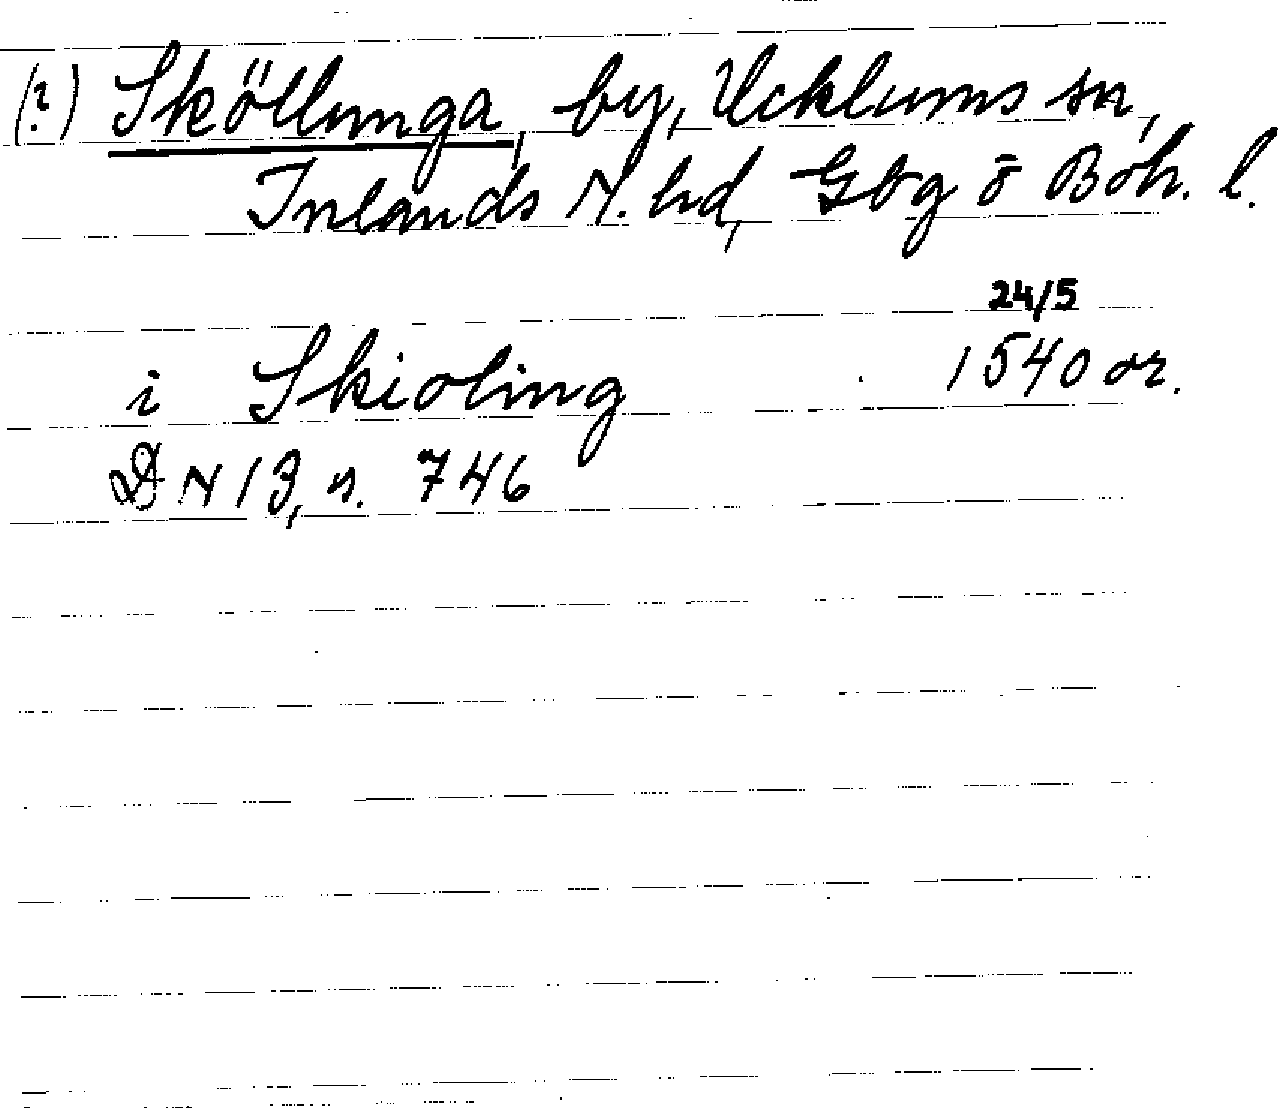 (?) Sköllunga, by, Ucklums sn,
Inlands N. hd, Gbg o Boh. l.
24/5
i Skioling 1540 or.
DN 13, n. 746